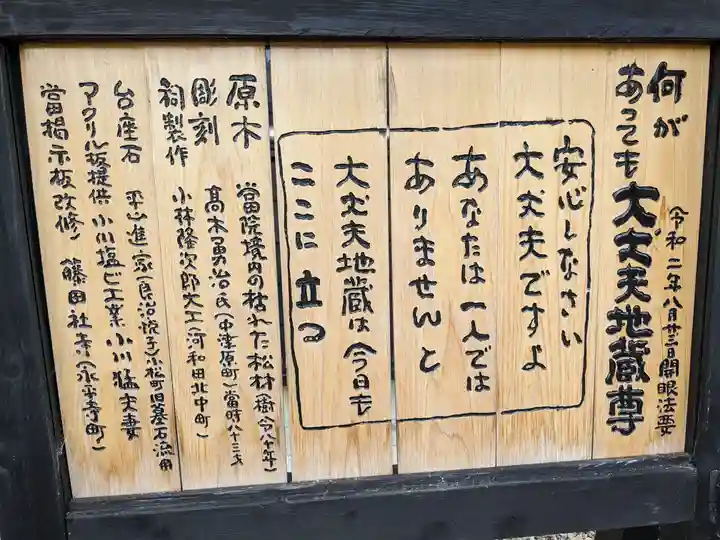 何が
あっても大丈夫地蔵尊
(令和二年八月廿三日開眼法要
安心しなさい
大丈夫ですよ
あなたは一人では
ありませんと
大丈夫地蔵は今日も
ここに立つ
原木 當院境内の枯れた松材(樹令八十年)
彫刻 髙木勇治氏(中澤原町)當時八十三才
祠製作 小林隆次郎大工(河和田北中町)
台座石 平山進家(良治悦子)小松町旧墓石流用
アクリル板提供 小川塩ビ工業 小川猛夫妻
當掲示板改修) 藤田社寺(永平寺町)